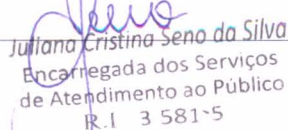 Juliana Cristina Seno da Silva
Encarregada dos Serviços
de Atendimento ao Público
R.I 3 581-5